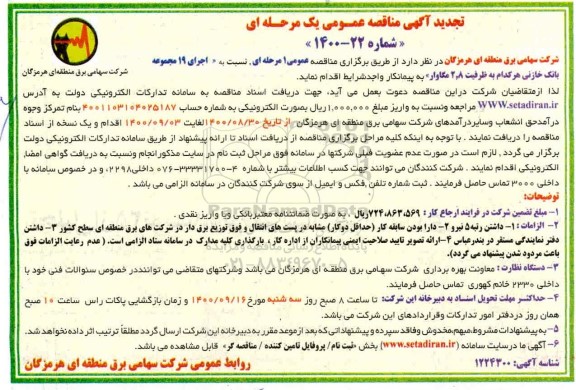 تجدید آگهی مناقصه عمومی یک مرحله ای
« شماره ۲۲-۱۴۰۰ »
شرکت سهامی برق منطقه ای هرمزگان
شرکت سهامی برق منطقه ای هرمزگان در نظر دارد از طریق برگزاری مناقصه عمومی ۱ مرحله ای . نسبت به « اجرای ۱۹ مجموعه
بانک خازنی هرکدام به ظرفیت ۲٫۸ مگاوار» به پیمانکار واجدشرایط اقدام نماید.
لذا ازمتقاضیان شرکت دراین مناقصه دعوت بعمل می آید، جهت دریافت اسناد مناقصه به سامانه تدارکات الکترونیکی دولت به آدرس
www.setadiran.ir مراجعه ونسبت به واریز مبلغ ۱٬۰۰۰٬۰۰۰ ریال بصورت الکترونیکی به شماره حساب ۴۰۰۱۱۰۳۱۰۴۰۲۵۱۸۷ بنام تمرکز وجوه
درآمدحق انشعاب وسایردرآمدهای شرکت سهامی برق منطقه ای هرمزگان از تاریخ ۱۴۰۰/۰۸/۳۰ لغایت ۱۴۰۰/۰۹/۰۳ اقدام و یک نسخه از اسناد
مناقصه را دریافت نمایند . با توجه به اینکه کلیه مراحل برگزاری مناقصه از دریافت اسناد تا ارائه پیشنهاد از طریق سامانه تدارکات الکترونیکی دولت
برگزار می گردد , لازم است در صورت عدم عضویت قبلی شرکتها در سامانه فوق مراحل ثبت نام در سایت مذکورانجام ونسبت به دریافت گواهی امضاء
الکترونیکی اقدام نمایند . شرکت کنندگان می توانند جهت کسب اطلاعات بیشتر با شماره ۴-۳۳۳۳۱۷۰۰-۰۷۶ داخلی۲۲۹۸، و در خصوص سامانه با
داخلی ۳۰۰۰ تماس حاصل فرمایند . ثبت شماره تلفن ,فکس و ایمیل از سوی شرکت کنندگان در سامانه الزامی می باشد .
توضیحات:
۱- مبلغ تضمین شرکت در فرایند ارجاع کار : ۷۲۴٫۸۶۳٫۵۶۹ریال . به صورت ضمانتنامه معتبربانکی ویا واریز نقدی .
۲- الزامات : ۱- داشتن رتبه۵ نیرو ۲- دارا بودن سابقه کار (حداقل دوکار) مشابه در پست های انتقال و فوق توزیع برق دار در شرکت های برق منطقه ای سطح کشور ۳- داشتن
دفتر نمایندگی مستقر در بندرعباس ۴-ارائه تصویر تایید صلاحیت ایمنی پیمانکاران از اداره کار ، بارگذاری کلیه مدارک در سامانه ستاد الزامی است. ( عدم رعایت الزامات فوق
باعث مردود شدن پیشنهاد می گردد).
۳- دستگاه نظارت : معاونت بهره برداری شرکت سهامی برق منطقه ای هرمزگان می باشد وشرکتهای متقاضی می توانند در خصوص سئوالات فنی خود با
داخلی ۲۳۳۰ خانم کهوری تماس حاصل فرمایند.
۴- حداکثر مهلت تحویل اسناد به دبیرخانه این شرکت: تا ساعت ۸ صبح روز سه شنبه مورخ۱۴۰۰/۰۹/۱۶ و زمان بازگشایی پاکات راس ساعت ۱۰ صبح
همان روز دردفتر امور تدارکات وقراردادهای این شرکت می باشد.
۵- به پیشنهادات مشروط،مبهم،مخدوش وفاقدسپرده و پیشنهاداتی که بعد از موعد مقرر به دبیرخانه این شرکت ارسال گردد مطلقاً ترتیب اثر داده نخواهد شد.
۶- آگهی ها درسایت سامانه (www.setadiran.ir) بخش «ثبت نام / پروفایل تامین کننده / مناقصه گر» قابل مشاهده می باشد.
شناسه آگهی: ۱۲۲۴۳۰۰
روابط عمومی شرکت سهامی برق منطقه ای هرمزگان